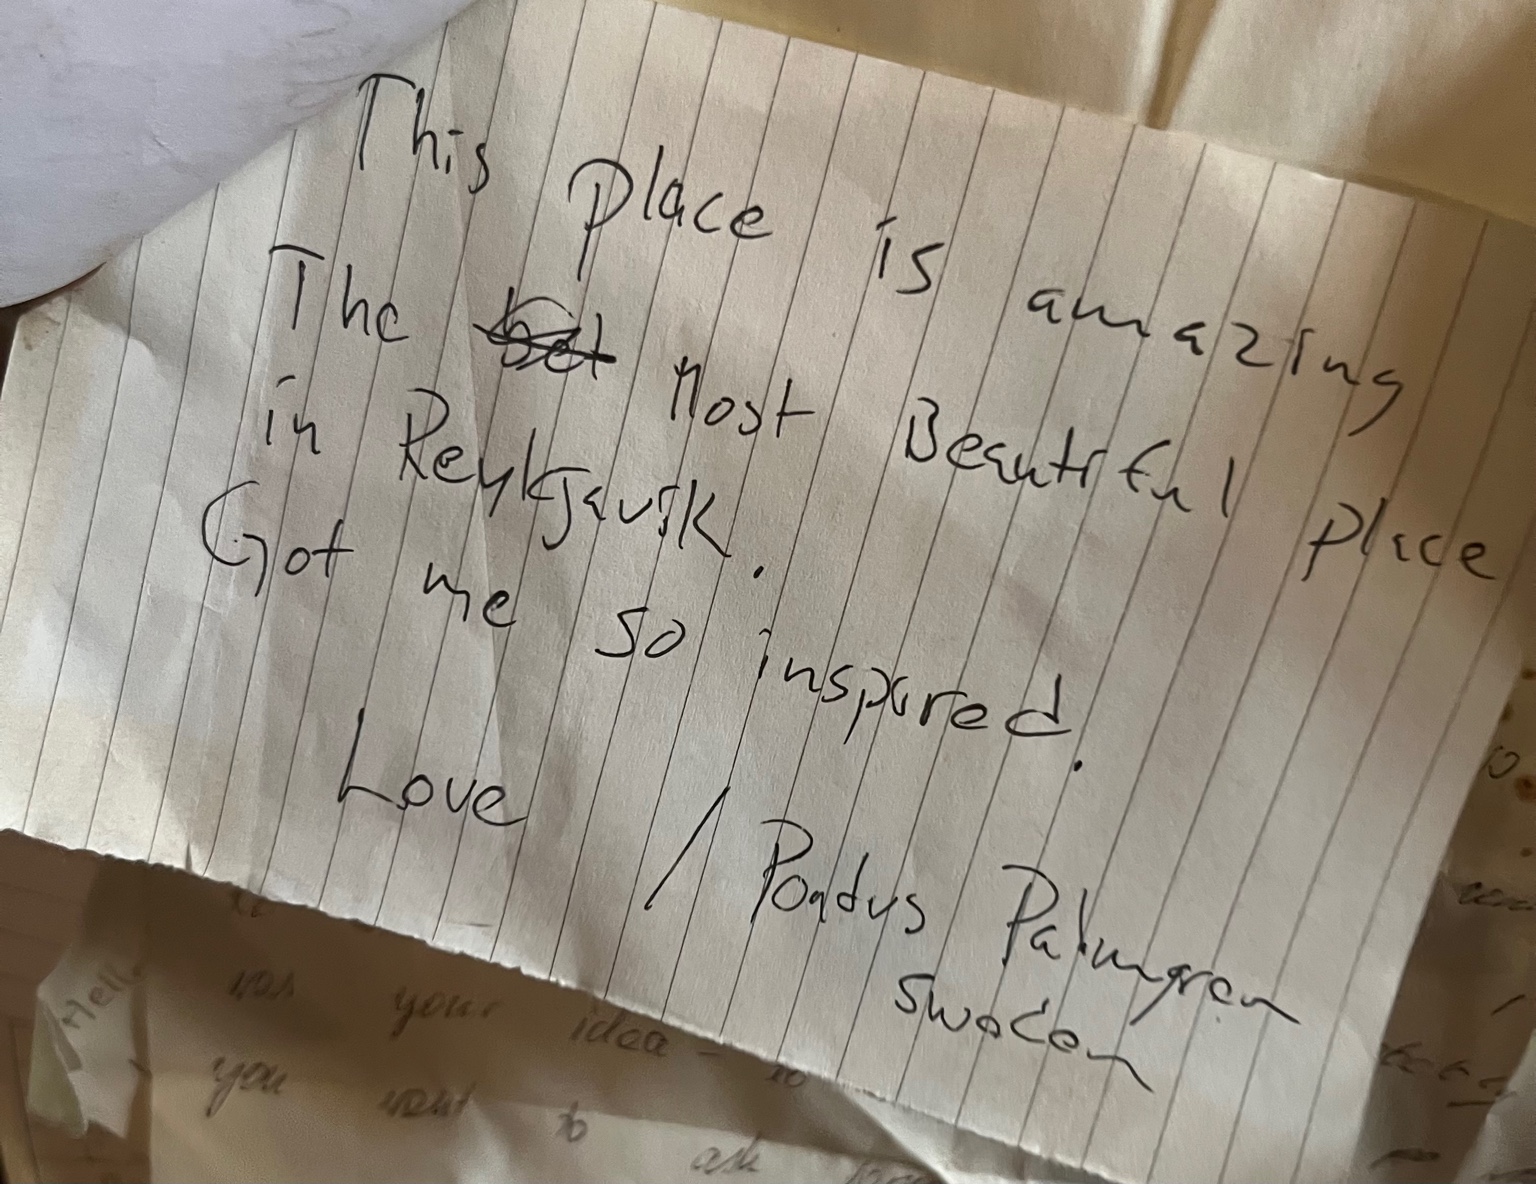 This place is amazing
The bet Most Beautiful place
in Reykjavik.
Got me so inspired.
Love / Pontus Palmgren
Sweden
Hello
your idea -
you want to ask